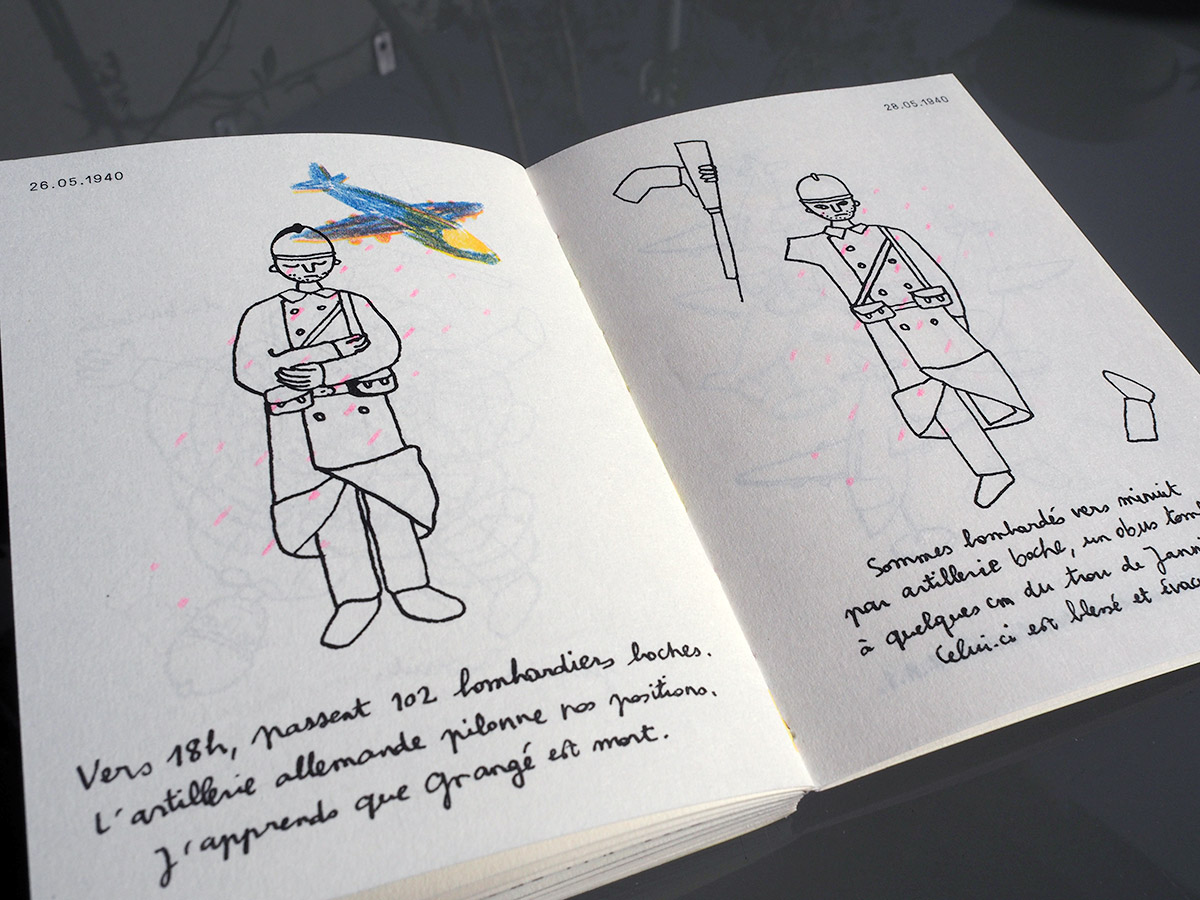 26.05.1940
Vers 18h, passent 102 bombardiers boches.
L'artillerie allemande pilonne nos positions.
J'apprends que Grangé est mort.
28.05.1940
Sommes bombardés vers minuit
par artillerie boche, un obus
à quelques cm du trou de
Celui-ci est blessé et